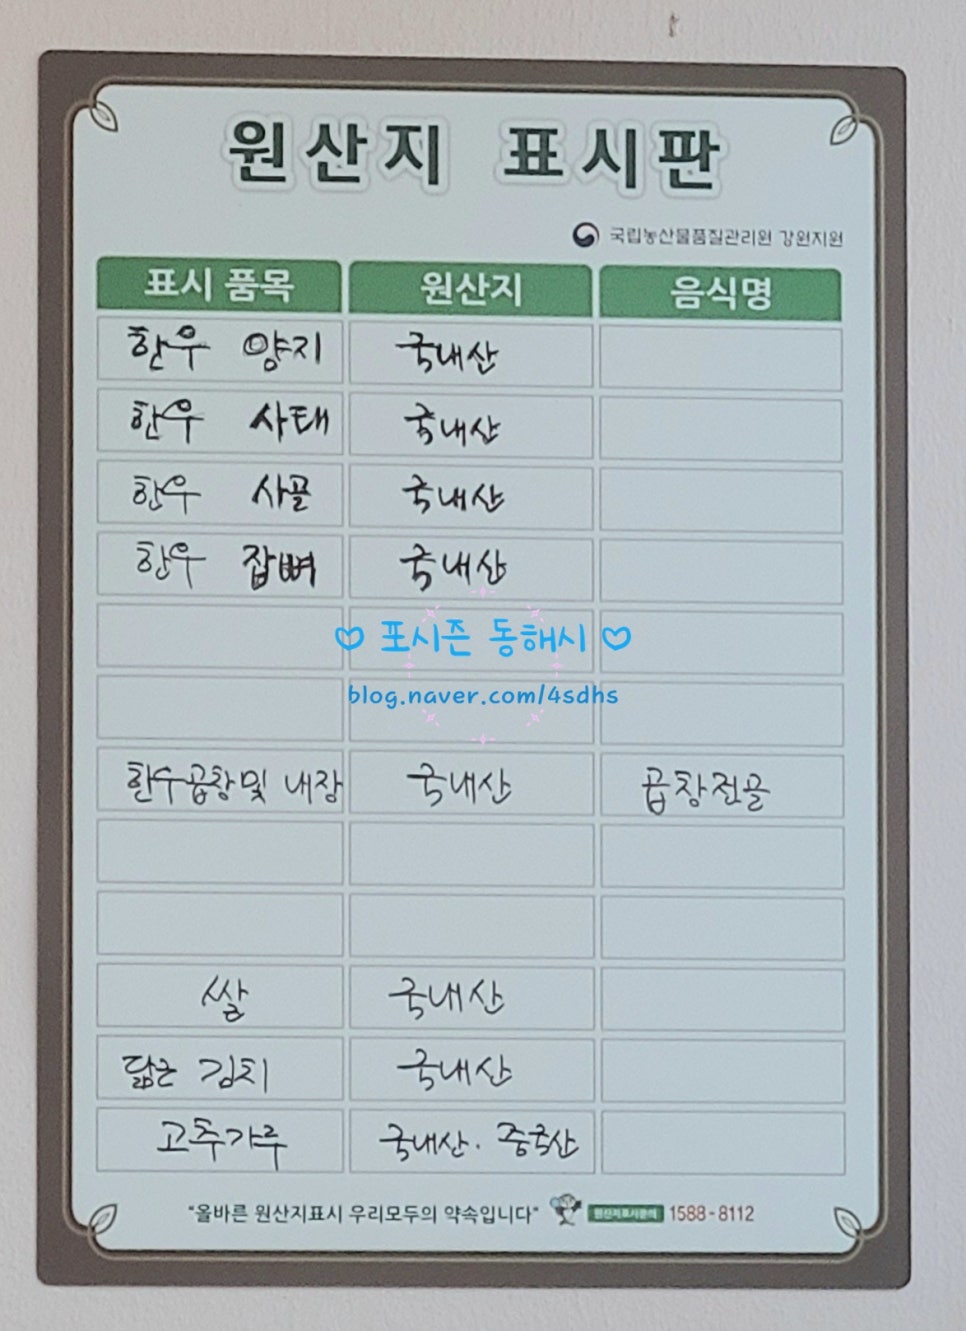 원산지 표시판
국립농산물품질관리원 강원지원
표시 품목 원산지 음식명
한우 양지 국내산
한우 사태 국내산
한우 사골 국내산
한우 잡뼈 국내산
♡ 포시즌 동해시 ♡
blog.naver.com/4sdhs
한우곱창및 내장 국내산 곱창전골
쌀 국내산
김치 국내산
고추가루 국내산. 중국산
"올바른 원산지표시 우리모두의 약속입니다" 원산지표시문의 1588-8112